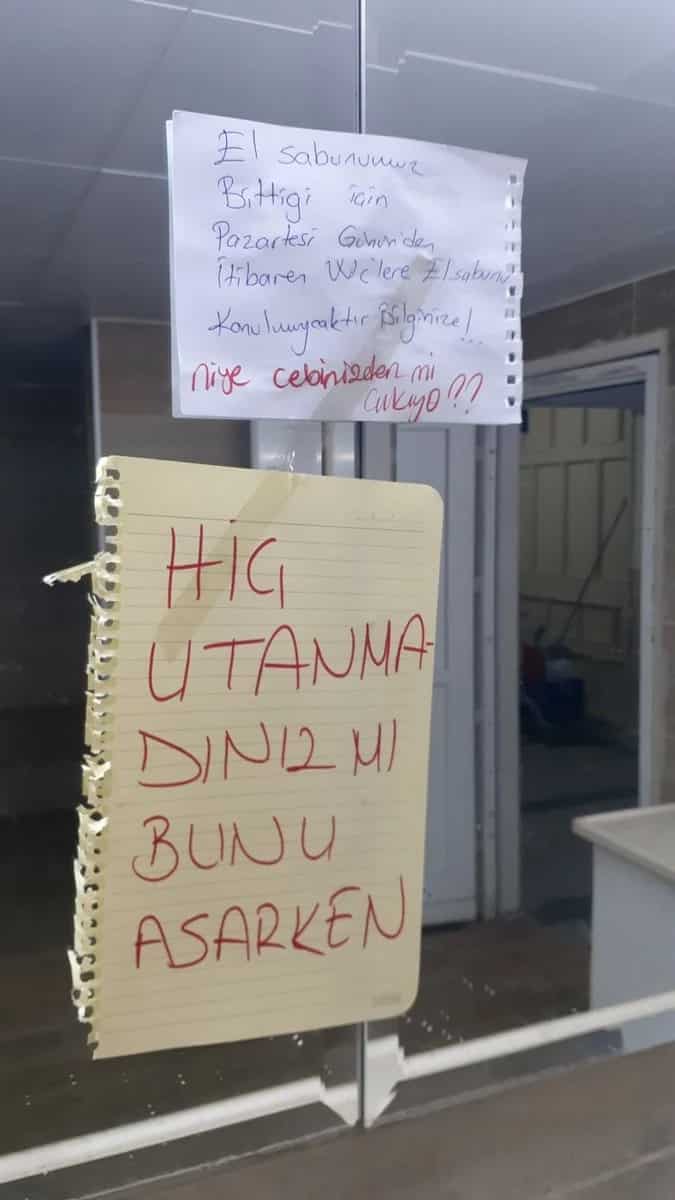 El sabunumuz
Bittiği için
Pazartesi Günün'den
İtibaren Wc'lere El sabunu
Konulmıycaktır Bilginize!...
niye cebinizden mi
çıkıyo??
HİÇ
UTANMA-
DINIZ MI
BUNU
ASARKEN